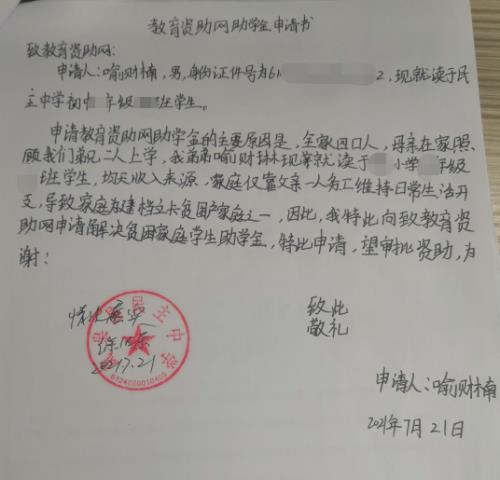 教育资助网助学金申请书
致教育资助网:
申请人:喻财楠,男,身份证件号为61 2,现就读于民
主中学初 年级 班学生。
申请教育资助网助学金的主要原因是,全家四口人,母亲在家照
顾我们弟兄二人上学,我弟弟喻财林现就读于 小学 年级
班学生,均无收入来源,家庭仅靠父亲一人务工维持日常生活开
支,导致家庭为建档立卡贫困户家庭之一,因此,我特此向致教育资
助网申请解决贫困家庭学生助学金,特此申请,望审批资助,为
谢!
致此
敬礼
情况属实
2021.7.21
民主中学
申请人:喻财楠
2021年7月21日